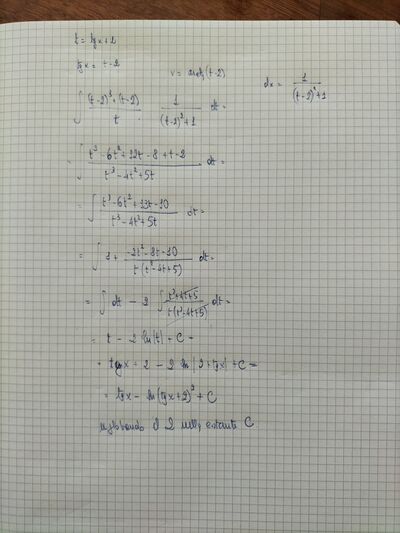 t = tgx + 2
tgx = t - 2
x = arctg(t-2)
dx = 1/((t-2)²+1)
∫ ((t-2)³+(t-2))/t · 1/((t-2)²+1) dt =
= ∫ (t³-6t²+12t-8+t-2)/(t³-4t²+5t) dt =
= ∫ (t³-6t²+13t-10)/(t³-4t²+5t) dt =
= ∫ 1 + (-2t²-8t-10)/(t(t²-4t+5)) dt =
= ∫ dt - 2 ∫ (t²+4t+5)/(t(t²-4t+5)) dt =
= t - 2 ln|t| + C =
= tgx + 2 - 2 ln|2+tgx| + C =
= tgx - ln(tgx+2)² + C
inglobando il 2 nella costante C